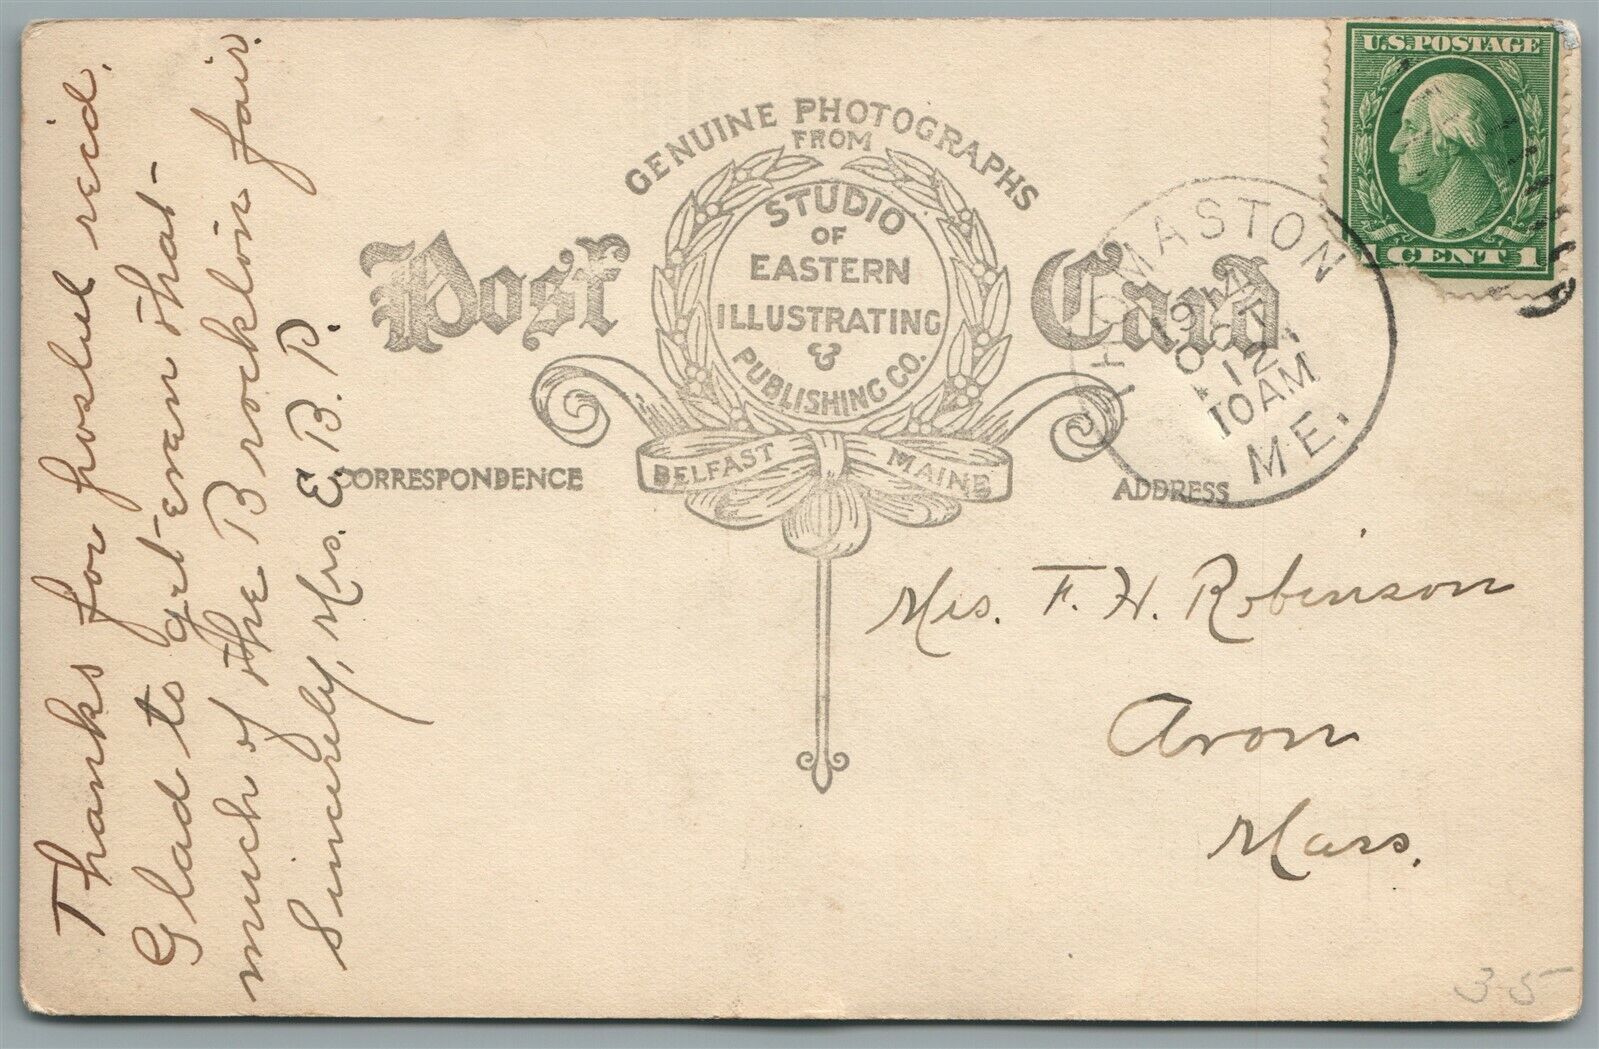 Thanks for postal rec'd.
Glad to get even that
much of the Brockton fair.
Sincerely, Mrs. E. B. P.
GENUINE PHOTOGRAPHS
FROM
STUDIO
OF
EASTERN
ILLUSTRATING
&
PUBLISHING CO.
BELFAST MAINE
Post Card
CORRESPONDENCE
ADDRESS
U.S. POSTAGE
1 CENT 1
THOMASTON
OCT
12
10 AM
ME.
Mrs. F. H. Robinson
Avon
Mass.
35